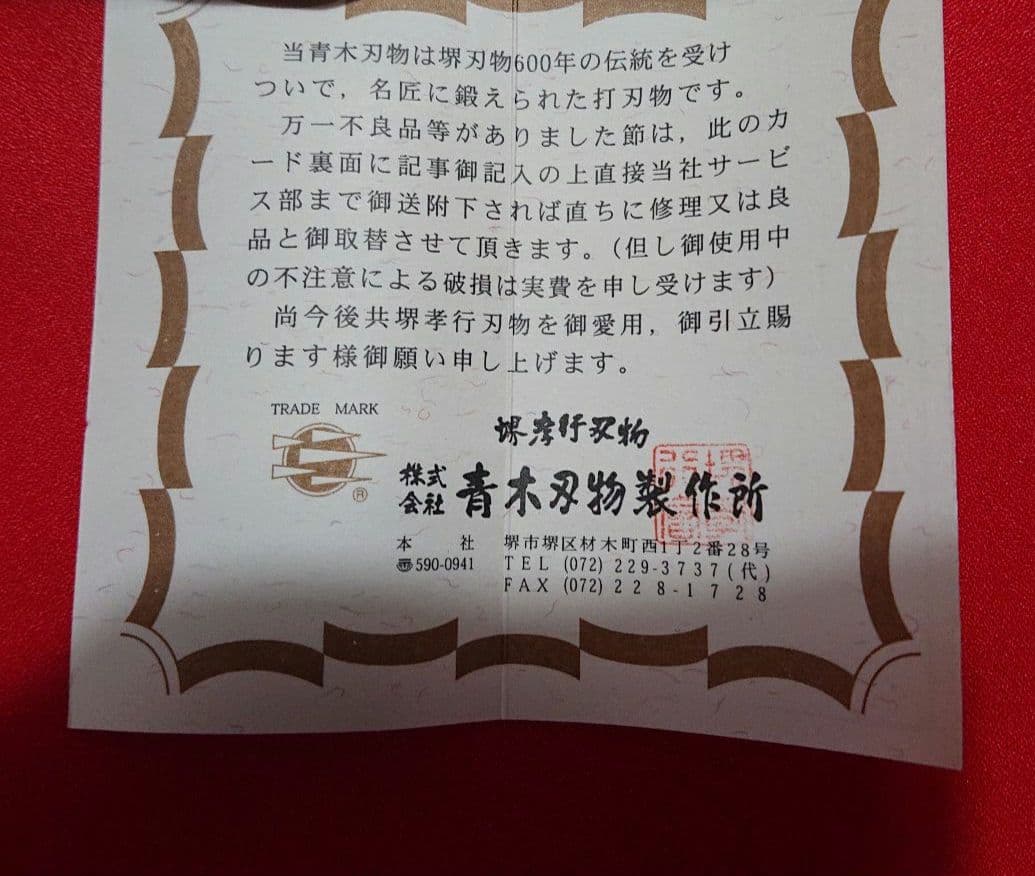 当青木刃物は堺刃物600年の伝統を受け
ついで，名匠に鍛えられた打刃物です。
万一不良品等がありました節は，此のカ
ード裏面に記事御記入の上直接当社サービ
ス部まで御送附下されば直ちに修理又は良
品と御取替させて頂きます。（但し御使用中
の不注意による破損は実費を申し受けます）
尚今後共堺孝行刃物を御愛用，御引立賜
ります様御願い申し上げます。
TRADE MARK
®
堺孝行刃物
株式会社 青木刃物製作所
本社 堺市堺区材木町西1丁2番28号
〠590-0941 TEL (072) 229-3737(代)
FAX (072) 228-1728